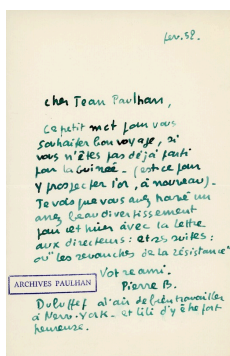 fev. 52.
cher Jean Paulhan,
ce petit mot pour vous
souhaiter bon voyage, si
vous n'êtes pas déjà parti
pour la Guinée - (est ce pour
y prospecter l'or, à nouveau) -
Je vois que vous avez trouvé un
assez beau divertissement
pour cet hiver avec la lettre
aux directeurs: et ses suites:
ou "les revanches de la résistance"
Votre ami.
Pierre B.
ARCHIVES PAULHAN
Dubuffet a l'air de bien travailler
à New-York - et Lili d'y être fort
heureuse.